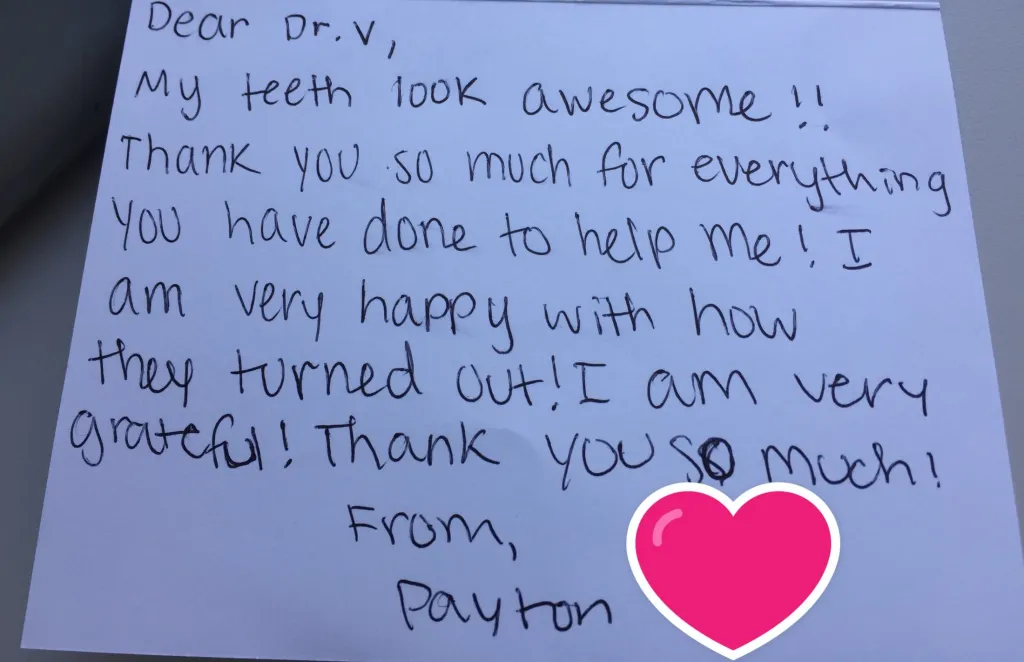 Dear Dr. V,
My teeth look awesome!!
Thank you so much for everything
you have done to help me! I
am very happy with how
they turned out! I am very
grateful! Thank you so much!
From,
Payton